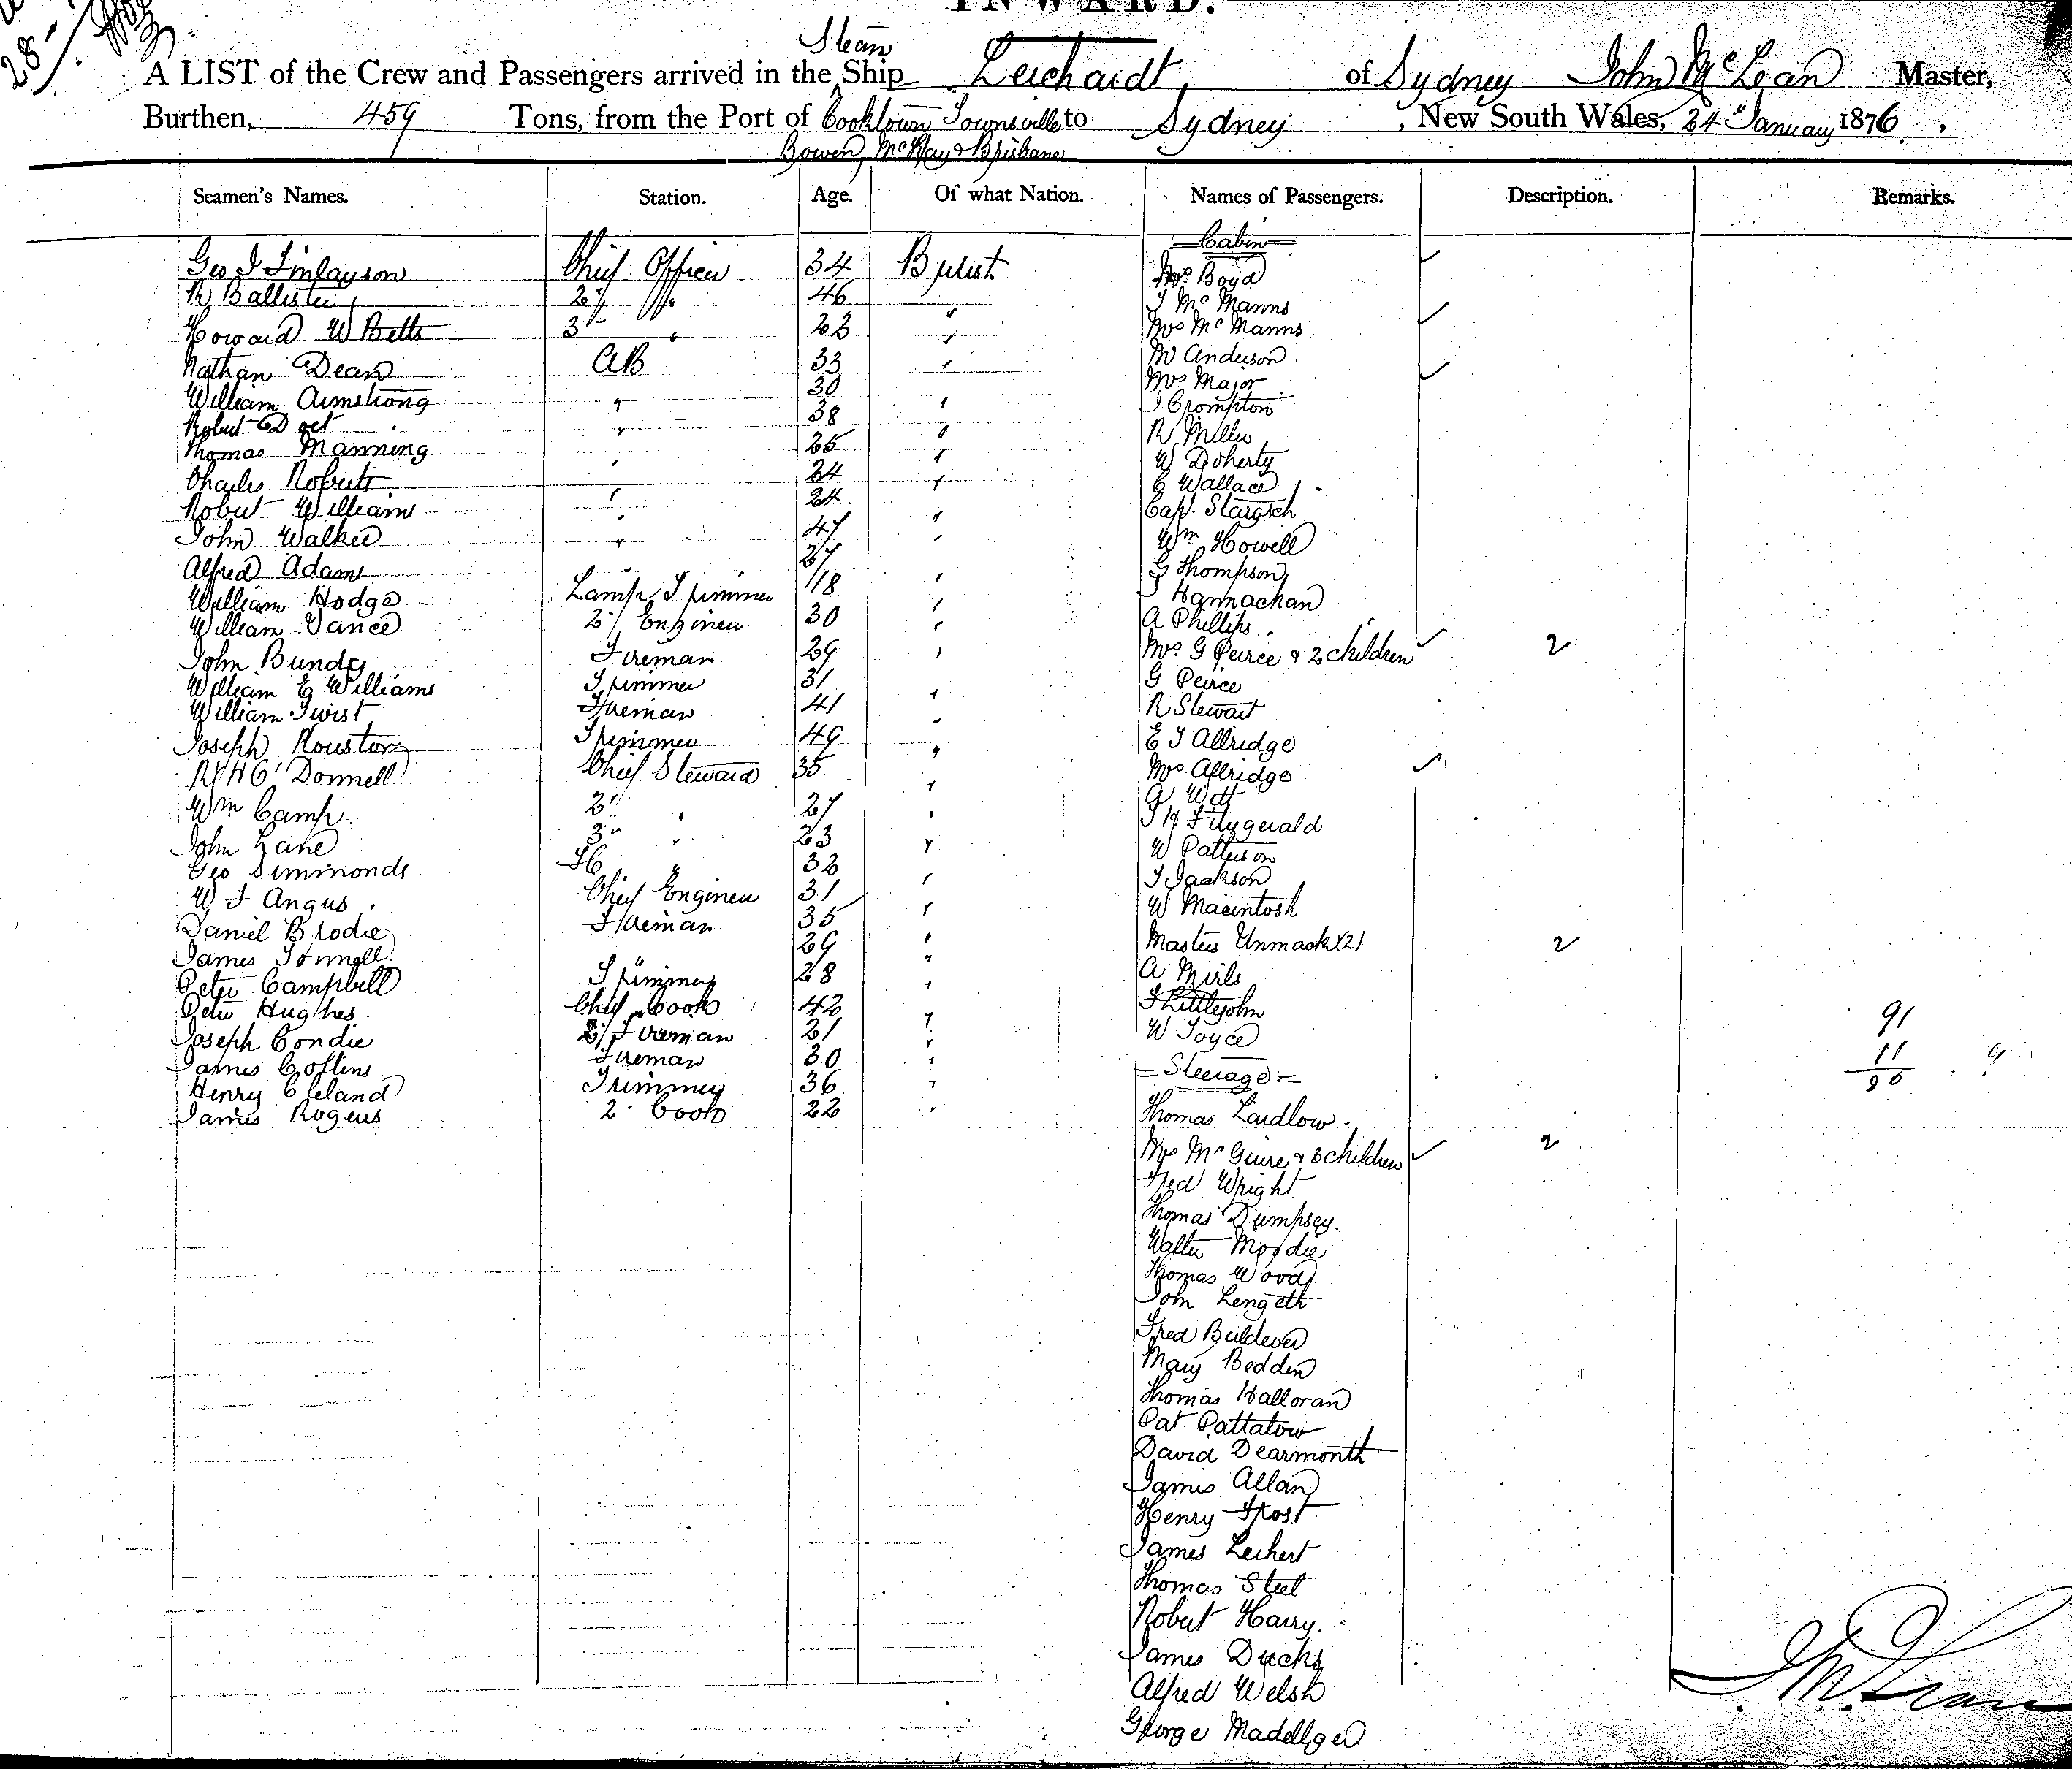 INWARD.
Steam
A LIST of the Crew and Passengers arrived in the Ship Leichardt, of Sydney John McLean Master,
Burthen, 459 Tons, from the Port of Cooktown Townsville to Sydney, New South Wales, 24 January 1876,
Bowen, McKay & Brisbane
Seamen's Names. Station. Age. Of what Nation. Names of Passengers. Description. Remarks.
Cabin
Geo J Finlayson Chief Officer 34 British Mrs Boyd
R Ballister 2/ " 46 J McManns
Howard W Betts 3 " 23 " Mrs McManns
Nathan Dean AB 33 " M Anderson
William Armstrong " 30 " Mrs Major
Robert " 38 " J Crompton
Thomas Manning " 25 " R Miller
Charles Roberts " 24 " W Doherty
Robert Williams " 24 " C Wallace
John Walker " 47 " Capt.
Alfred Adams 27 Wm Howell
William Hodge Lamp Trimmer 18 " G Thompson
William Vance 2/ Engineer 30 " J Hannachan
John Bundy Fireman 29 " A Phillips
William E Williams Trimmer 31 " Mrs G Peirce & 2 children 2
William Twist Fireman 41 " G Peirce
Joseph Trimmer 49 " R Stewart
R H O'Donnell Chief Steward 35 " E J Allridge
Wm Camp 2 " 27 " Mrs Allridge
John Lane 3 " 23 "
Geo Simmonds " 32 J H Fitzgerald
W F Angus Chief Engineer 31 " W Patterson
Daniel Brodie Fireman 35 " J Jackson
James " 29 " W Macintosh
Peter Campbell Trimmer 28 " Masters Unmack (2) 2
Peter Hughes Chief Cook 42 " A
Joseph Condie 2/ Fireman 21 " J Littlejohn
James Collins Fireman 30 " W Joyce
Henry Cleland Trimmer 36 " Steerage
James Rogers 2 Cook 22 " Thomas Laidlow
91
11
80
Mrs McGuire & 3 children 2
Fred Wright
Thomas Dumpsey.
Walter Moodie
Thomas Wood
John Lengeth
Fred Buldever
Mary Bedden
Thomas Halloran
Pat Pattatow
David Dearmonth
James Allan
Henry Frost
James Leihert
Thomas Steel
Robert Harry.
James Ducks
Alfred Welsh
George
J McLean